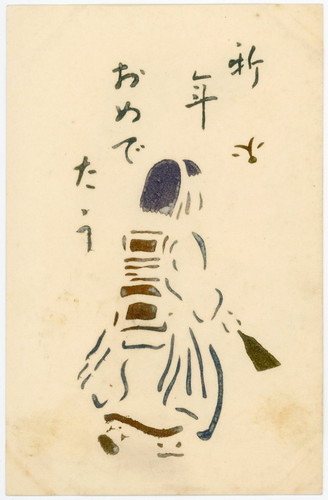 新年
おめで
たう